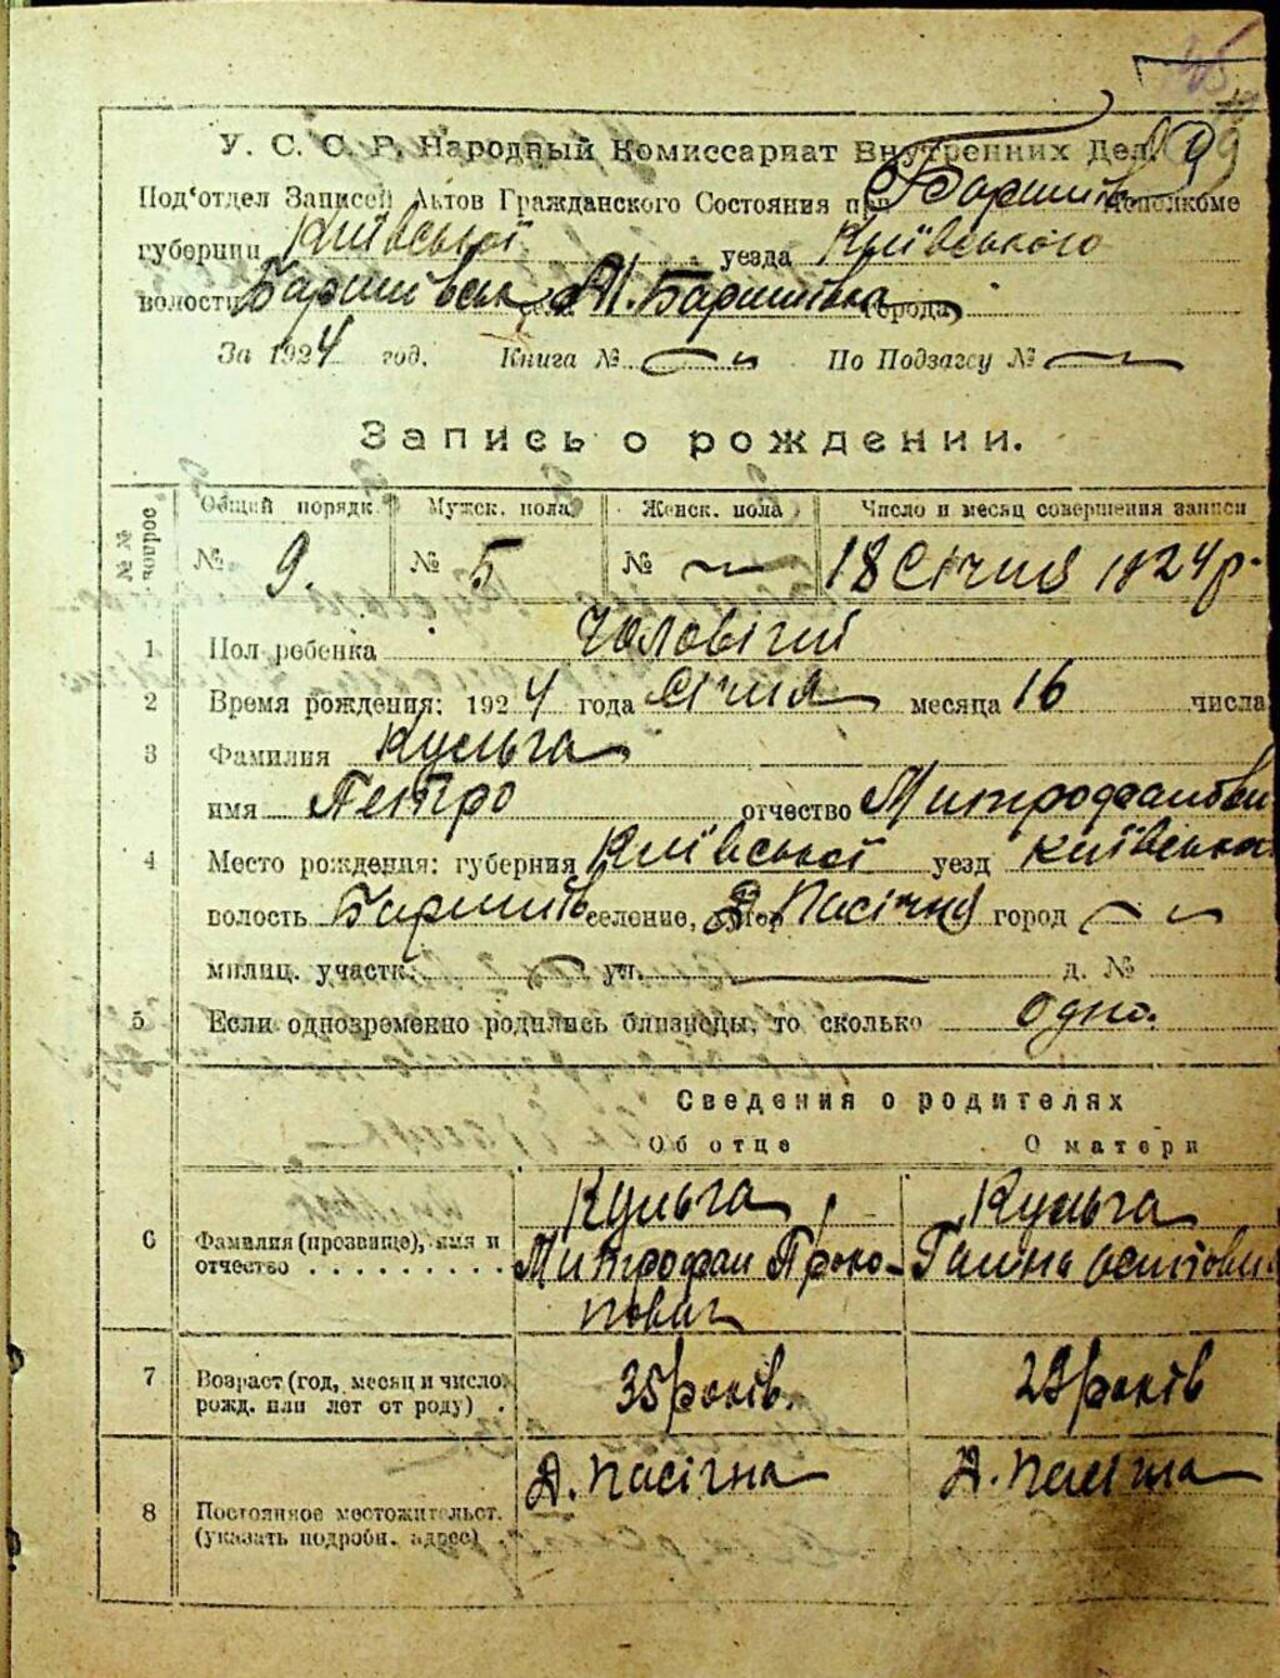 У. С. С. Р. Народный Комиссариат Внутренних Дел.
Под'отдел Записей Актов Гражданского Состояния при Баришівс Исполкоме
губернии Київської уезда Київського
волости Баришівськ М. Баришівка города
За 1924 год. Книга № По Подзагсу №
Запись о рождении.
№№ вопрос. Общий порядк. Мужск. пола Женск. пола Число и месяц совершения записи
№ 9. № 5 № 18 Січня 1924 р.
1 Пол ребенка Чоловічий
2 Время рождения: 1924 года Січня месяца 16 числа
3 Фамилия Кульга
имя Петро отчество Митрофанови
4 Место рождения: губерния Київської уезд Київська
волость Баришів селение, хутор Д. Пасічня город
милиц. участк. ул. д. №
5 Если одновременно родились близнецы, то сколько одно.
Сведения о родителях
Об отце О матери
6 Фамилия (прозвище), имя и отчество
Кульга Митрофан Прокопович
Кульга Ганна Осипови
7 Возраст (год, месяц и число рожд. или лет от роду)
35 років. років
8 Постоянное местожительст. (указать подробн. адрес)
Д. Пасічна Д. Пасічна